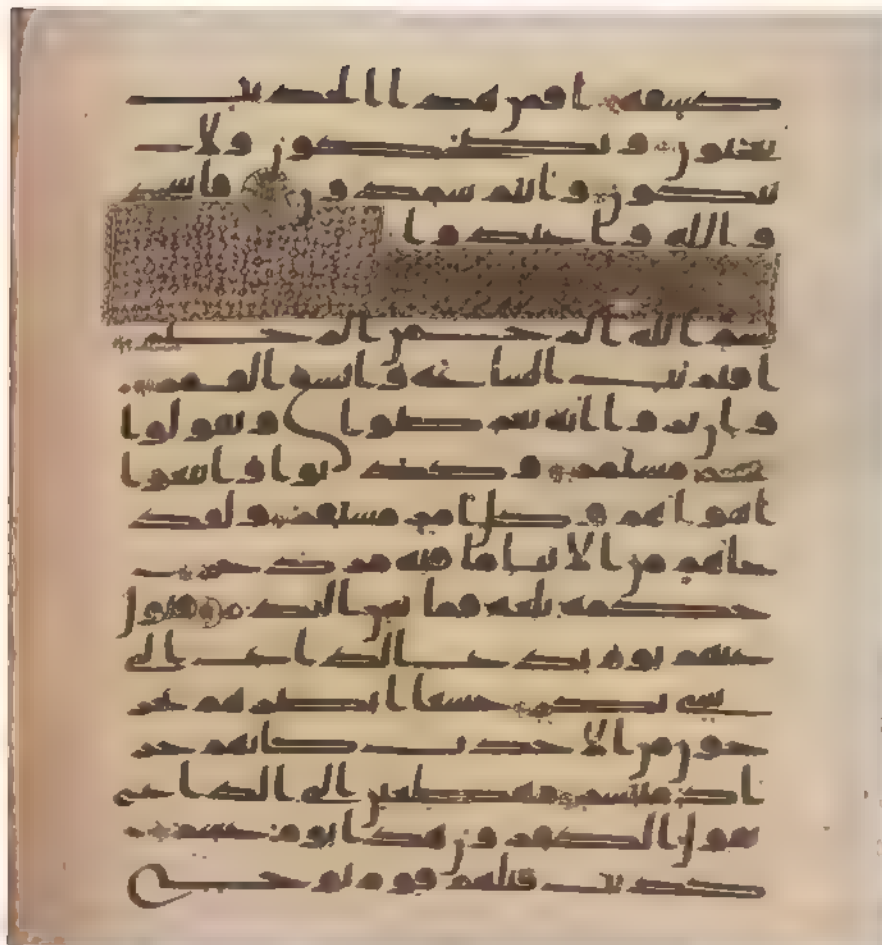 كشفه افمن هذا الحديث
تعجبون وتضحكون ولا
تبكون وانتم سمدون فاسجد
وا لله واعبدوا
بسم الله الرحمن الرحيم
اقتربت الساعه وانشق القمر
وان يروا ايه يعرضوا ويقولوا
سحر مستمر وكذبوا واتبعوا
اهواهم وكل امر مستقر ولقد
جاهم من الانبا ما فيه مزدجر
حكمه بلغه فما تغن النذر فتول
عنهم يوم يدع الداع الى
شى نكر خشعا ابصرهم يخر
جون من الاجداث كانهم جر
اد منتشر مهطعين الى الداع يـ
قول الكفرون هذا يوم عسر
كذبت قبلهم قوم نوح